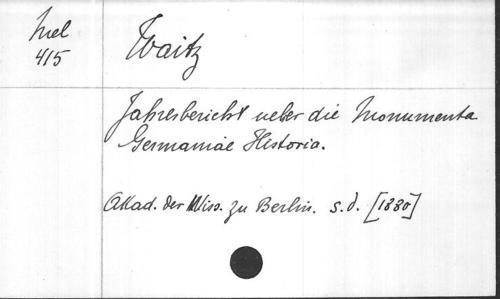 Mel
415
Waitz
Jahresbericht ueber die Monumenta
Germaniae Historia.
Akad. der Wiss. zu Berlin. s.d. [1880]